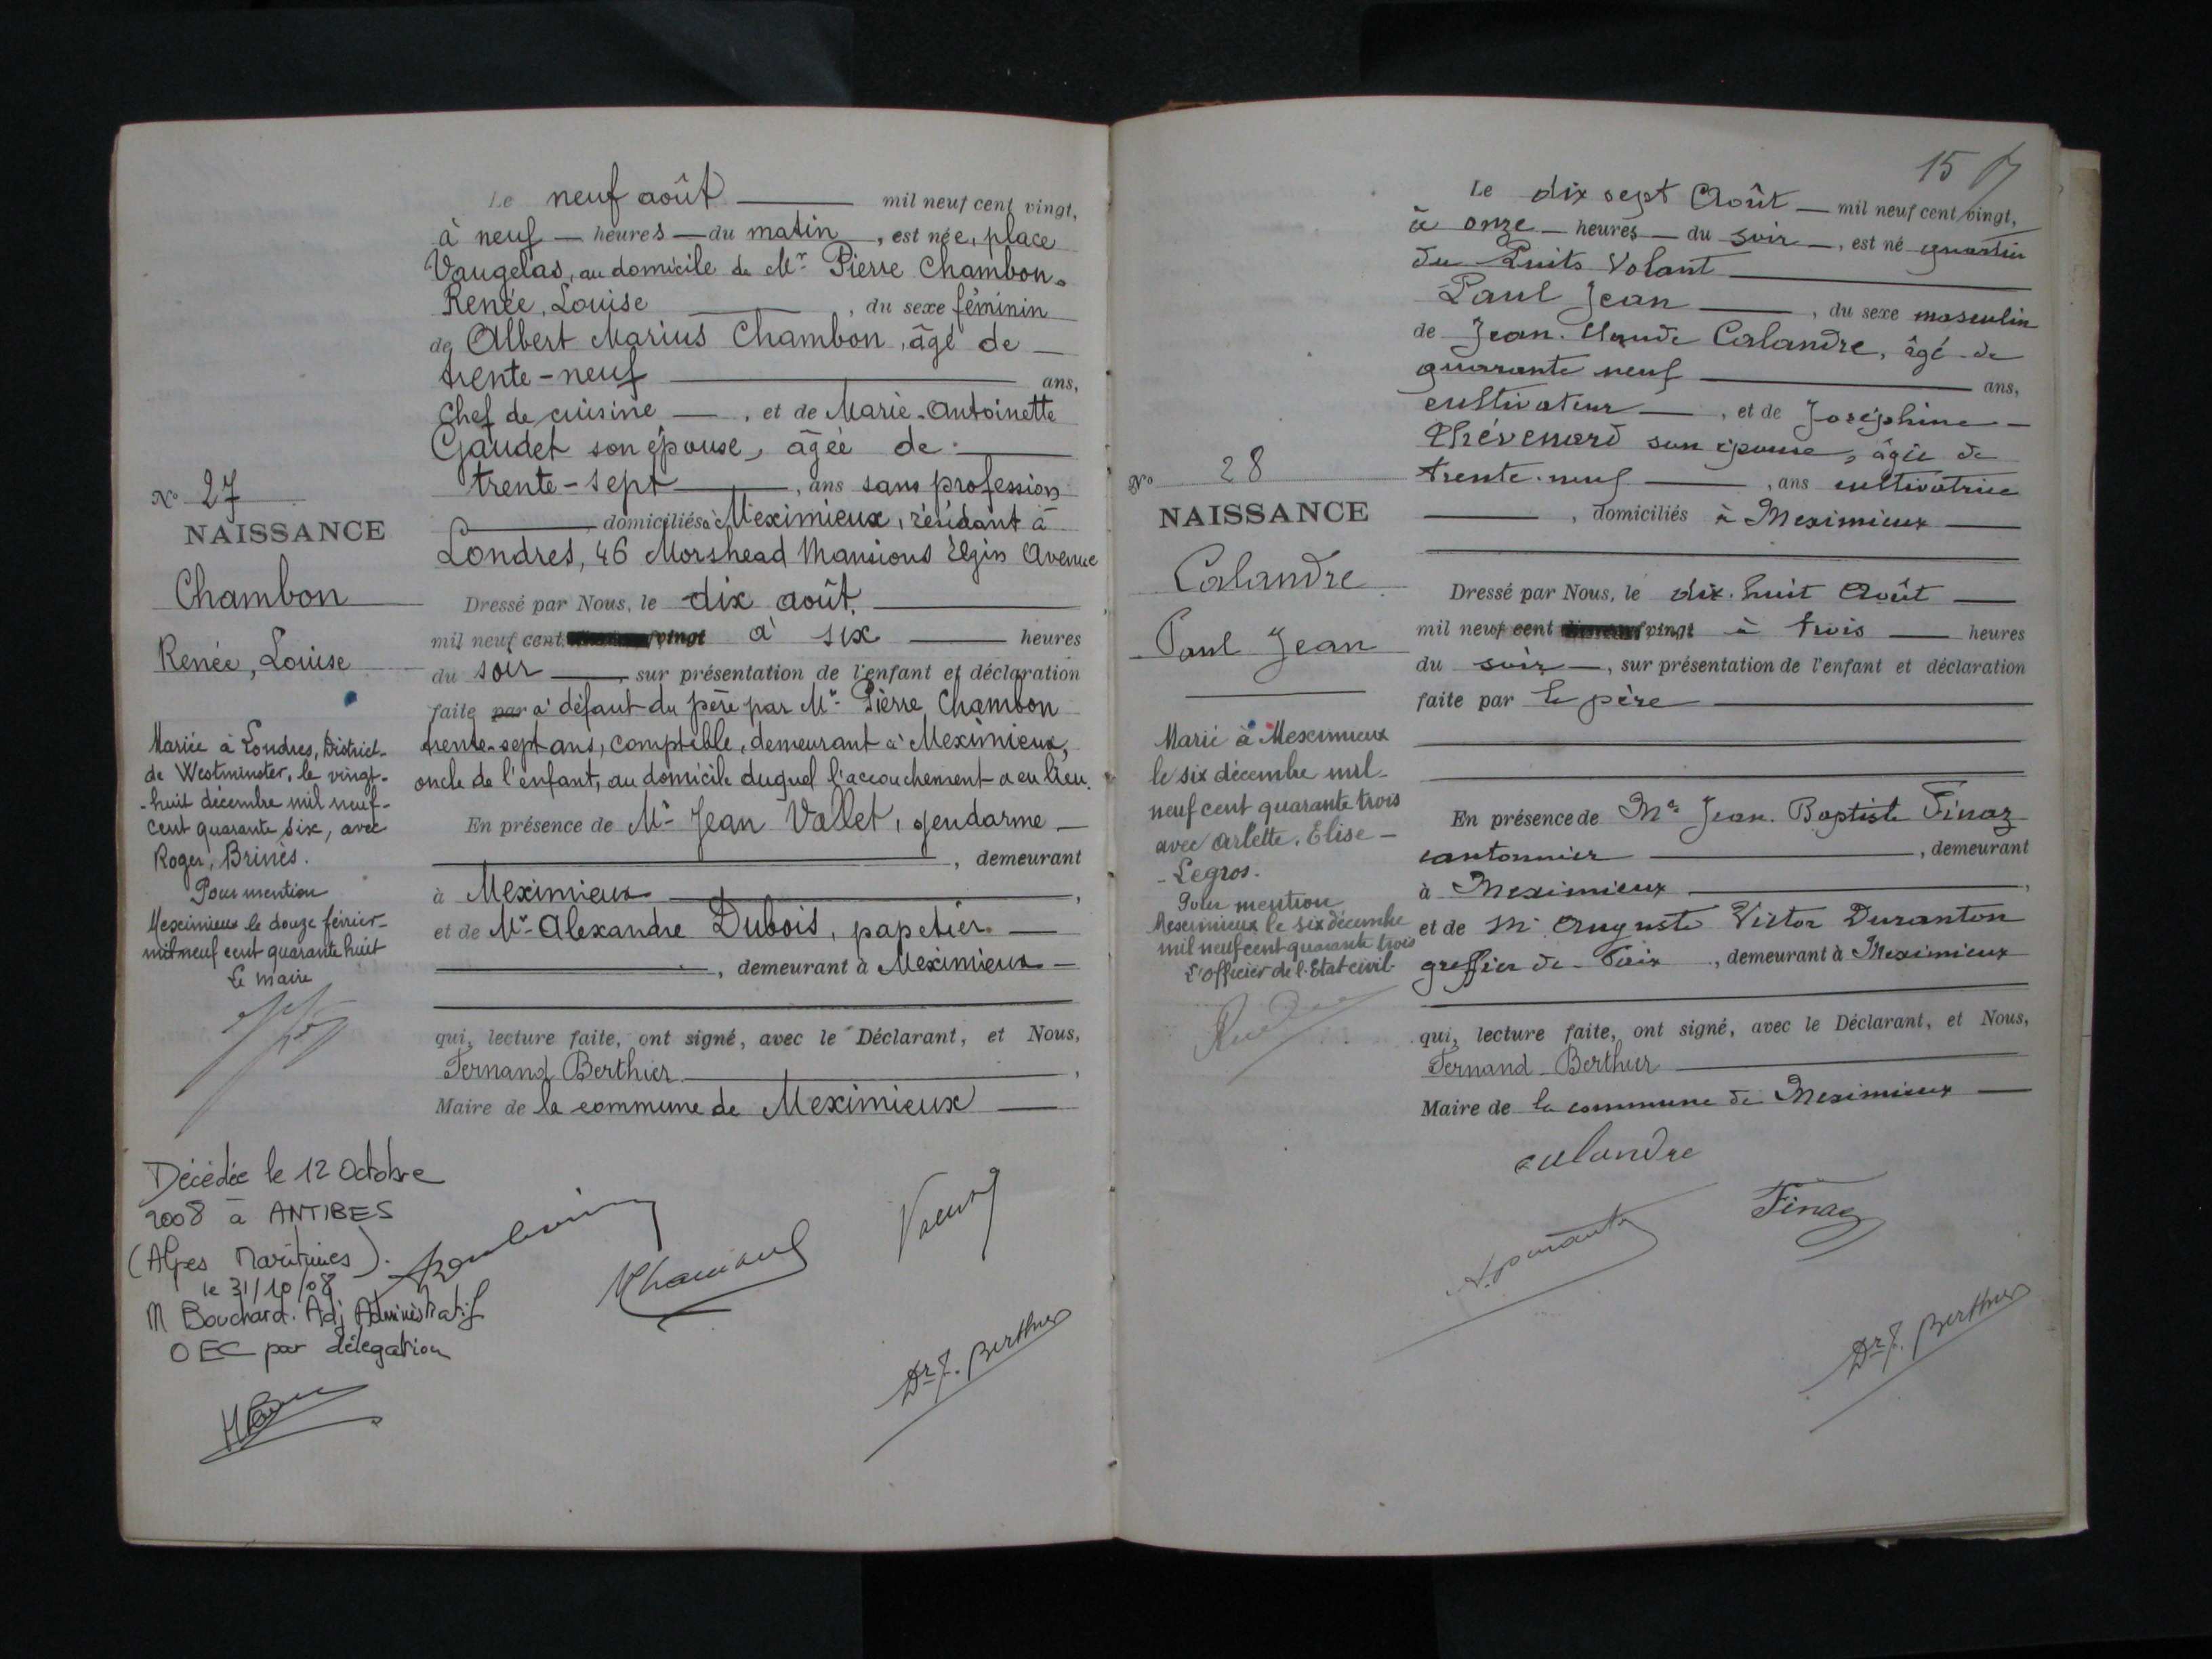 Le neuf août mil neuf cent vingt,
à neuf heures du matin, est née, place
Vaugelas, au domicile de Mr Pierre Chambon.
Renée, Louise, du sexe féminin
de Albert Marius Chambon, âgé de
trente-neuf ans,
Chef de cuisine, et de Marie-Antoinette
Gaudet son épouse, âgée de
trente-sept, ans sans profession
domiciliés à Meximieux, résidant à
Londres, 46 Morshead Mansions Elgin Avenue
No 27
NAISSANCE
Chambon
Renée, Louise
Dressé par Nous, le dix août,
mil neuf cent vingt à six heures
du soir, sur présentation de l'enfant et déclaration
faite par à défaut du père par Mr Pierre Chambon
trente-sept ans, comptable, demeurant à Meximieux,
oncle de l'enfant, au domicile duquel l'accouchement a eu lieu.
En présence de Mr Jean Vallet, gendarme
, demeurant
à Meximieux,
et de Mr Alexandre Dubois, papetier
, demeurant à Meximieux
qui, lecture faite, ont signé, avec le Déclarant, et Nous,
Fernand Berthier,
Maire de la commune de Meximieux
Mariée à Londres, District
de Westminster, le vingt-
-huit décembre mil neuf-
cent quarante six, avec
Roger, Brinès.
Pour mention
Meximieux le douze février
mil neuf cent quarante huit
Le maire
Décédée le 12 Octobre
2008 à ANTIBES
(Alpes Maritimes).
le 31/10/08
M Bouchard. Adj Administratif
OEC par délégation
Dr F. Berthier
15
Le dix sept Août mil neuf cent vingt,
à onze heures du soir, est né quartier
du Puits Volant
Paul Jean, du sexe masculin
de Jean. Claude Calandre, âgé de
quarante neuf ans,
cultivateur, et de Joséphine
Thévenard son épouse, âgée de
trente-neuf, ans cultivatrice
, domiciliés à Meximieux
No 28
NAISSANCE
Calandre
Paul Jean
Dressé par Nous, le dix-huit Août
mil neuf cent vingt à trois heures
du soir, sur présentation de l'enfant et déclaration
faite par le père
En présence de Mr Jean. Baptiste Finaz
cantonnier, demeurant
à Meximieux,
et de Mr Auguste Victor Duranton
greffier de Paix, demeurant à Meximieux
qui, lecture faite, ont signé, avec le Déclarant, et Nous,
Fernand Berthier
Maire de la commune de Meximieux
Marié à Meximieux
le six décembre mil
neuf cent quarante trois
avec Arlette, Elise
-Legros.
Pour mention
Meximieux le six décembre
mil neuf cent quarante trois
L'officier de l'Etat civil
calandre
Finaz
Dr F. Berthier